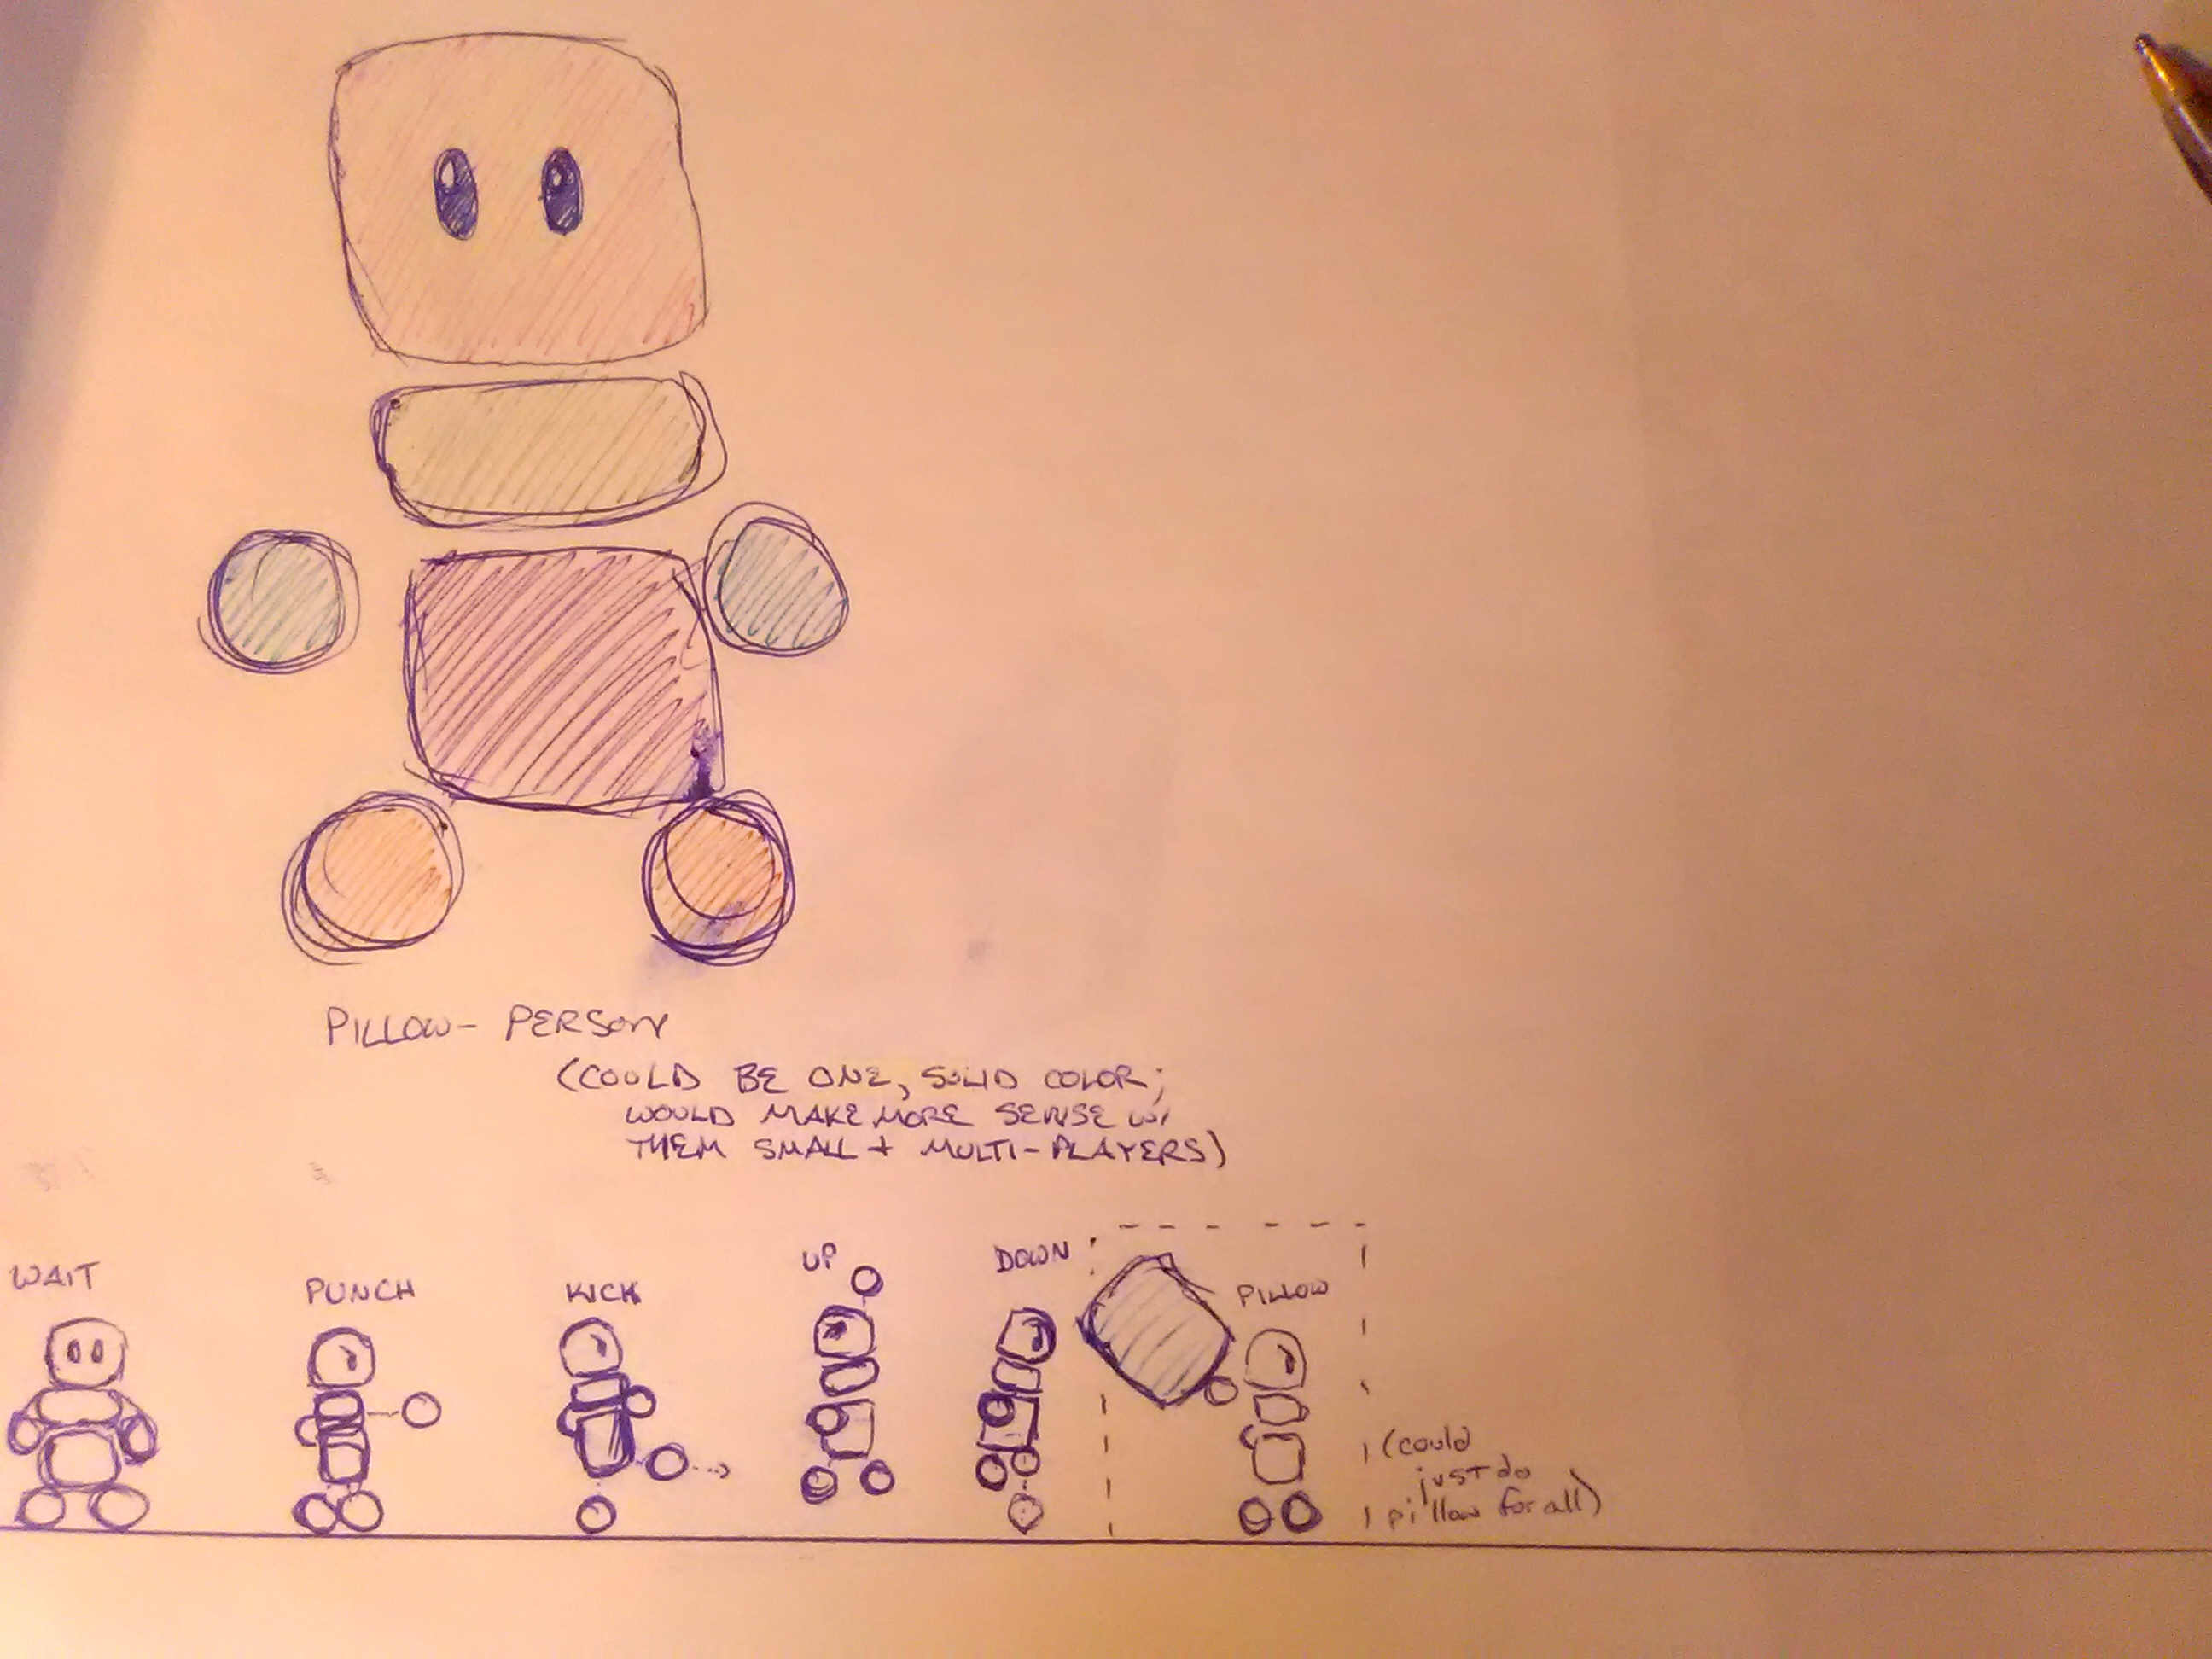 PILLOW-PERSON
(COULD BE ONE, SOLID COLOR;
WOULD MAKE MORE SENSE W/
THEM SMALL + MULTI-PLAYERS)
WAIT
PUNCH
KICK
UP
DOWN
PILLOW
(could
just do
1 pillow for all)